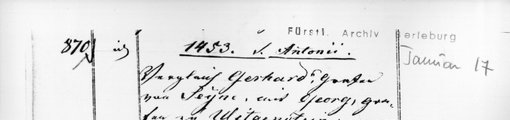 Fürstl. Archiv erleburg
870 1453. S. Antonii. Januar 17
Vergleich Gerhards Grafen
von Seyne, mit Georg, gra-
fen zu Witgenstein